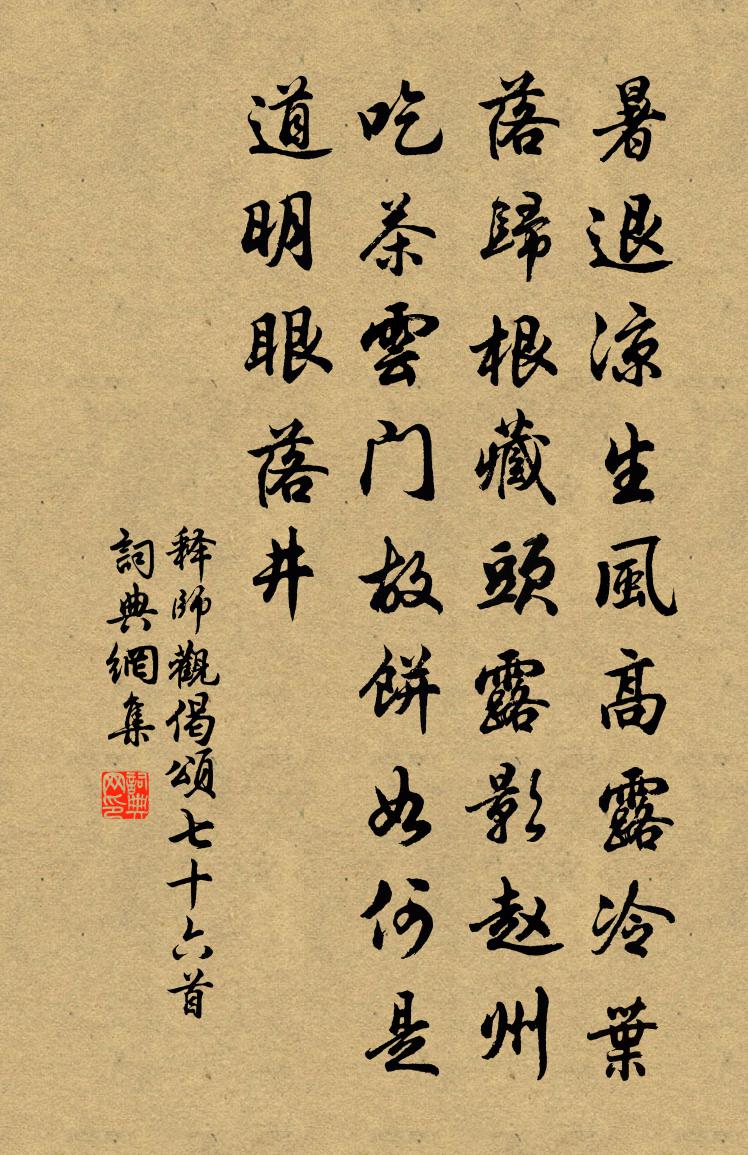 暑退凉生風高露冷葉
落歸根藏頭露影赵州
吃茶雲门放餅如何是
道明眼落井
释師觀偈頌七十六首
詞典網集
詞典网印